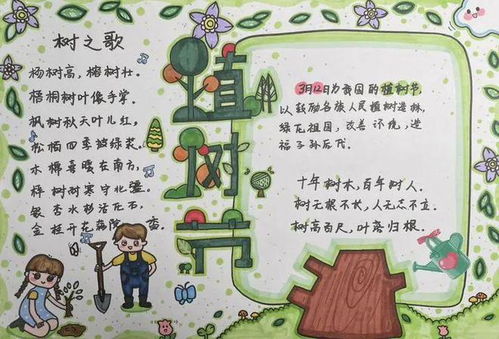 树之歌
杨树高，榕树壮，
梧桐树叶像手掌。
枫树秋天叶儿红，
松柏四季披绿装。
木棉喜暖在南方，
桦树耐寒守北疆。
银杏水杉活化石，
金桂开花满院香。
植树节
3月12日为我国的植树节，
以鼓励各族人民植树造林，
绿化祖国，改善环境，造
福子孙后代。
十年树木，百年树人。
树无根不长，人无志不立。
树高百尺，叶落归根。